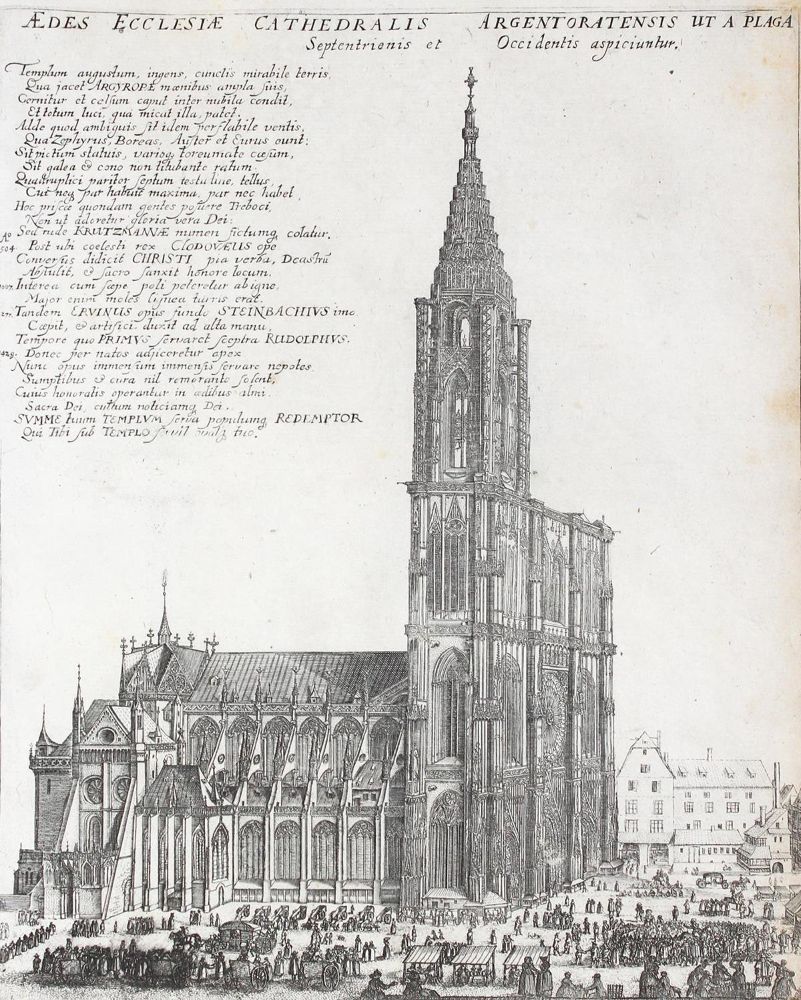 ÆDES ECCLESIÆ CATHEDRALIS ARGENTORATENSIS UT A PLAGA
Septentrionis et Occidentis aspiciuntur.
Templum augustum, ingens, cunctis mirabile terris,
Qua jacet ARGYROPE mœnibus ampla suis,
Cernitur et celsum caput inter nubila condit,
Et totum luci, qua micat illa, patet.
Adde quod ambiguis sit idem perflabile ventis,
Qua Zephyrus, Boreas, Auster et Eurus eunt:
Sit pictum statuis, varioq toreumate cæsum,
Sit galea & cono non titubante ratum.
Quadruplici pariter septum testudine, tellus,
Cui neq par habuit maxima, par nec habet,
Hoc prisce quondam gentes posuere Treboci,
Non ut adoretur gloria vera Dei:
Ao Sed rude KRUTZMANNÆ numen fictumq colatur.
504 Post ubi coelesti rex CLODOVÆUS ope
Conversus didicit CHRISTI pia verba, Deastrũ
Abstulit, & sacro sanxit honore locum.
1007. Interea cum sæpe poli peteretur ab igne,
Major enim moles lignea turris erat.
277. Tandem ERVINUS opus fundo STEINBACHIUS imo
Cœpit, & artifici duxit ad alta manu,
Tempore quo PRIMVS servaret sceptra RUDOLPHUS.
428. Donec per natos adjiceretur apex
Nunc opus immensum immensis servare nepotes
Sumptibus & cura nil remorante solent,
Cuius honoratis operantur in ædibus almi
Sacra Dei, cultum noticiamq Dei.
SUMME tuum TEMPLVM serva populumq REDEMPTOR
Qui Tibi sub TEMPLO tuo.